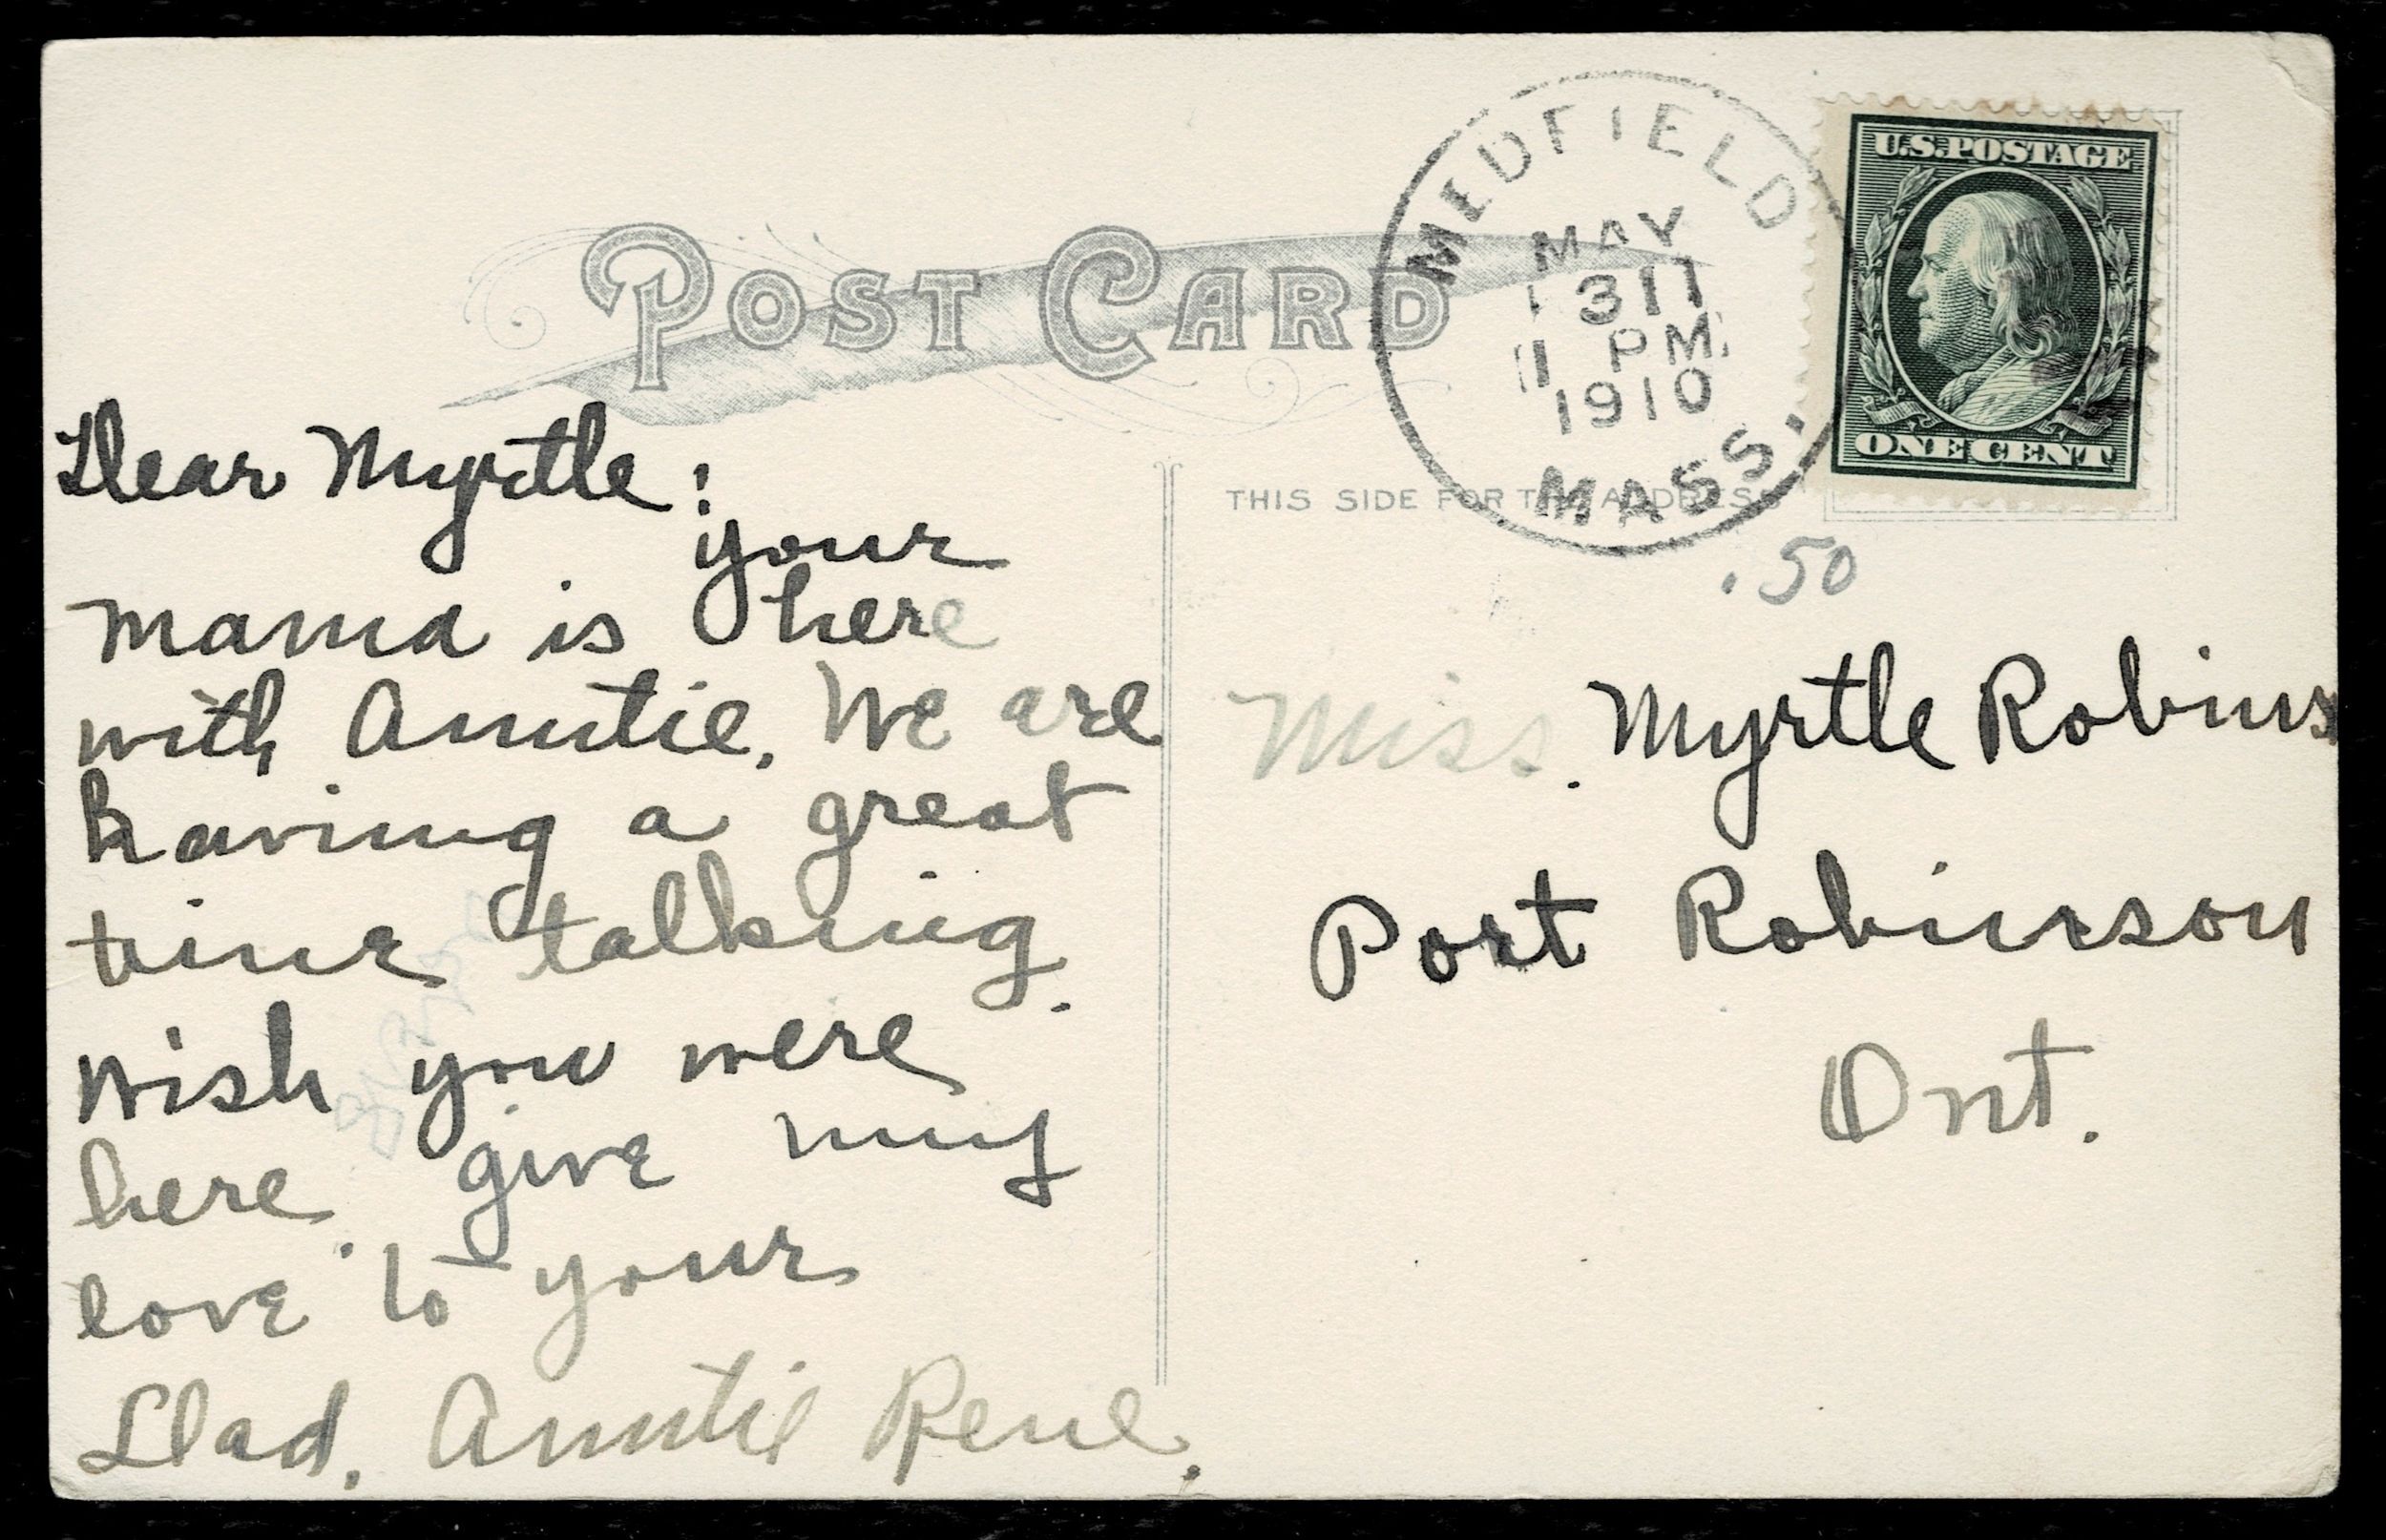 POST CARD
MEDFIELD
MAY
31
1 PM
1910
MASS.
U.S. POSTAGE
ONE CENT
THIS SIDE FOR THE ADDRESS
.50
Dear Myrtle:
your
mama is here
with Auntie. We are
having a great
time talking.
wish you were
here. give my
love to your
Dad. Auntie Rene.
Miss. Myrtle Robins
Port Robinson
Ont.